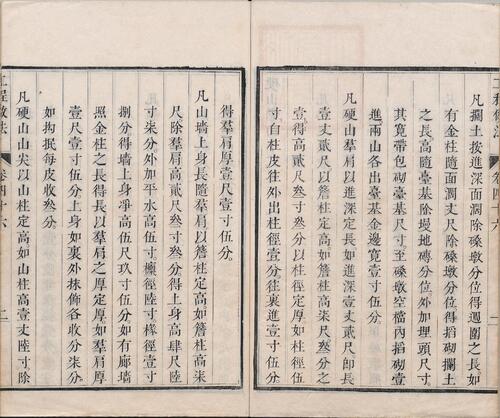 凡攔土按進深面濶除磉墩分位得週圍之長如
有金柱隨面濶丈尺除磉墩分位得掐砌攔土
之長高隨臺基除墁地磚分位外加埋頭尺寸
其寬帶包砌臺基尺寸至磉墩空檔內掐砌壹
進兩山各出臺基金邊寬壹寸伍分
凡硬山羣肩以進深定長如進深壹丈貳尺即長
壹丈貳尺以簷柱定高如簷柱高柒尺叁分之
壹得高貳尺叁寸叁分以柱徑定厚如柱徑伍
寸自柱皮往外出柱徑壹分往裏進壹寸伍分
得羣肩厚壹尺壹寸伍分
凡山墻上身長隨羣肩以簷柱定高如簷柱高柒
尺除羣肩高貳尺叁寸叁分得上身高肆尺陸
寸柒分外加平水高伍寸檁徑陸寸椽徑壹寸
捌分得上身凈高伍尺玖寸伍分如有廊墻
照金柱之長得長以羣肩之厚定厚如羣肩厚
壹尺壹寸伍分上身如裏外抹飾各收分柒分
如拘抿每皮收叁分
凡硬山山尖以山柱定高如山柱高壹丈陸寸除
工程做法
卷四十六
二